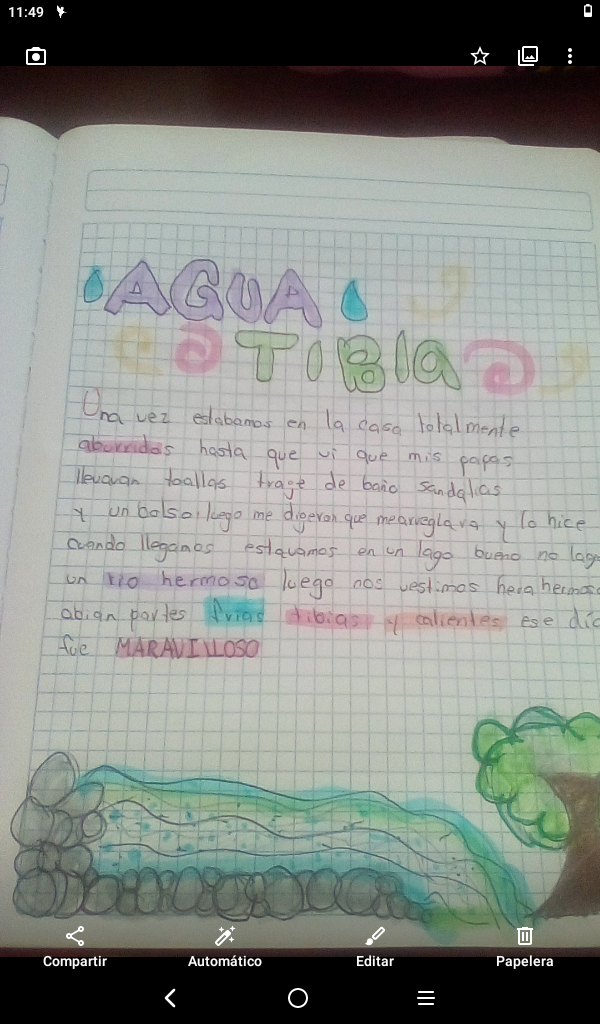 11:49
AGUA
TIBIA
Una vez estabamos en la casa totalmente
aburridos hasta que vi que mis papas
llevavan toallas traje de baño sandalias
y un bolso luego me digeron que mearreglara y lo hice
cuando llegamos estavamos en un lago bueno no lago
un rio hermoso luego nos vestimos hera hermoso
abian partes frias tibias y calientes ese día
fue MARAVILLOSO
Compartir Automático Editar Papelera